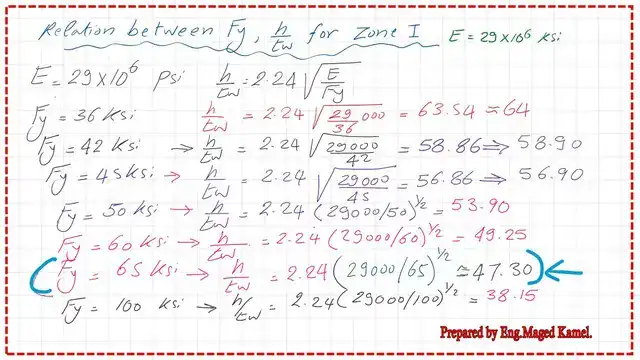 Relation between Fy, h/tw for Zone I E = 29x10⁶ Ksi
E = 29x10⁶ Psi h/tw = 2.24 √(E/Fy)
Fy = 36 Ksi h/tw = 2.24 √(29000/36) = 63.54 ≈ 64
Fy = 42 Ksi → h/tw = 2.24 √(29000/42) = 58.86 ⇒ 58.90
Fy = 45 Ksi → h/tw = 2.24 √(29000/45) = 56.86 ⇒ 56.90
Fy = 50 Ksi → h/tw = 2.24 (29000/50)^1/2 = 53.90
Fy = 60 Ksi → h/tw = 2.24 (29000/60)^1/2 = 49.25
(Fy = 65 Ksi → h/tw = 2.24 (29000/65)^1/2 ≈ 47.30) ←
Fy = 100 Ksi → h/tw = 2.24 (29000/100)^1/2 = 38.15
Prepared by Eng.Maged Kamel.